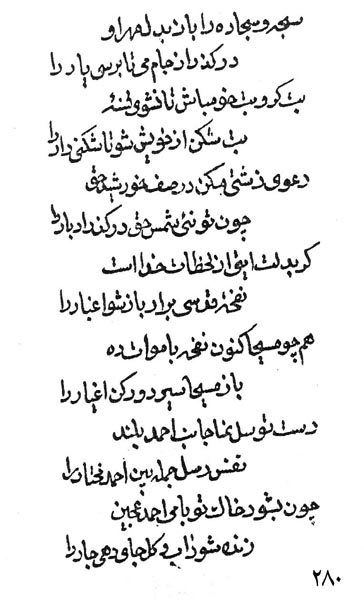 سبحه و سجاده را باز بدل مهر او
در کذر از جام می تا برسی یار را
بت کر و بت خو مباش تا نشوی فتنهٔ
بت شکن از خویش شو تا شکنی دار را
دعوی زشتی مکن در صف خورشید حق
چون تو نئی شمس حق در کذر ادبار را
کر بدلت ایفی از لحظات خدا است
نفخهٔ قدسی براد باز شو اغیار را
هم چو مسیحا کنون نفخه باموات ده
باز مسیحا سیر دور کن اغیار را
دست توسل نما جانب احمد بلند
نفس رسل جمله بین احمد مختار را
چون بشود خاک تو با می احمد عجین
زنده شود آب و کل جای دهی جار را
۲۸۰